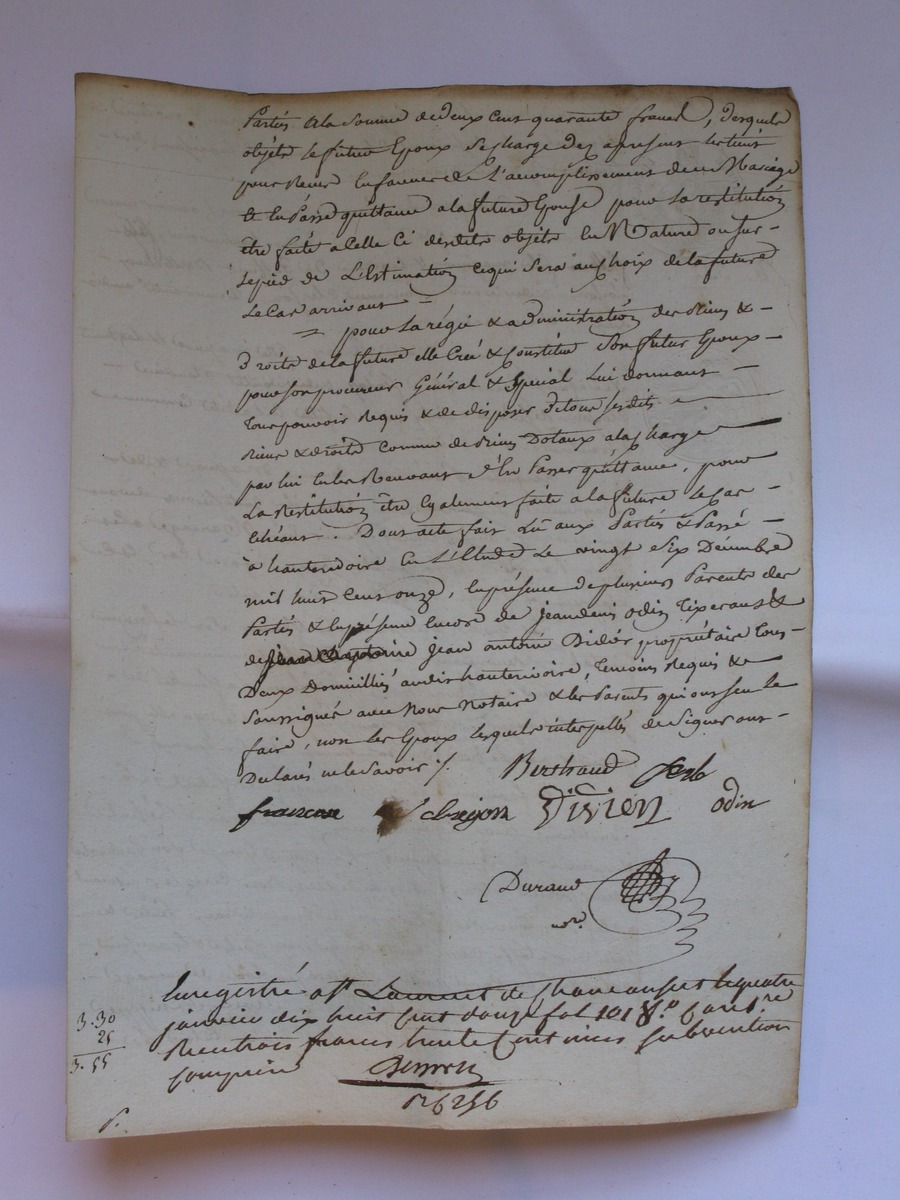 Parties a la somme de deux cent quarante francs, desquels
objets le futur Epoux se charge des apresent
pour Reçus En faveur de L'accomplissement de ce Mariage
& En Passe quittance a la future Epouse pour la restitution
être faite a Celle Ci desdits objets En Nature ou sur
le pied de L'Estimation ce qui sera au choix de la future
Le Cas arrivant
pour la régie & administration des Biens &
droits de la future elle Créé & Constitue son futur Epoux
pour son procureur Général & Spécial Lui donnant
Tout pouvoir Requis & de disposer de tous sesdits
Biens & droits Comme de Biens Dotaux a la charge
par lui En les Recevant d'En Passer quittance, pour
La Restitution être Egalement faite a la future le cas
Echéant. Dont acte fait Lû aux Parties & Passé
à hauterivoire En L'Etude Le vingt six Décembre
mil huit Cent onze, En présence de plusieurs Parents des
Parties & En présence encore de jean denis odin Tisserant &
de jean antoine Bidon propriétaire Tous
Deux Domiciliés audit hauterivoire, Temoins Requis &
Soussignés avec Nous Notaire & les Parents qui ont seu le
faire, non les Epoux lesquels interpellés de Signer ont
Déclaré ne le Savoir ./.
Berthaud
odin
Durand
no.re
Enregistré a St Laurent de Chamousset le quatre
janvier dix huit cent douze fol 101 V.o Case 1.re
Recu trois francs trente Centimes subvention
comprise
3.30
25
3.55